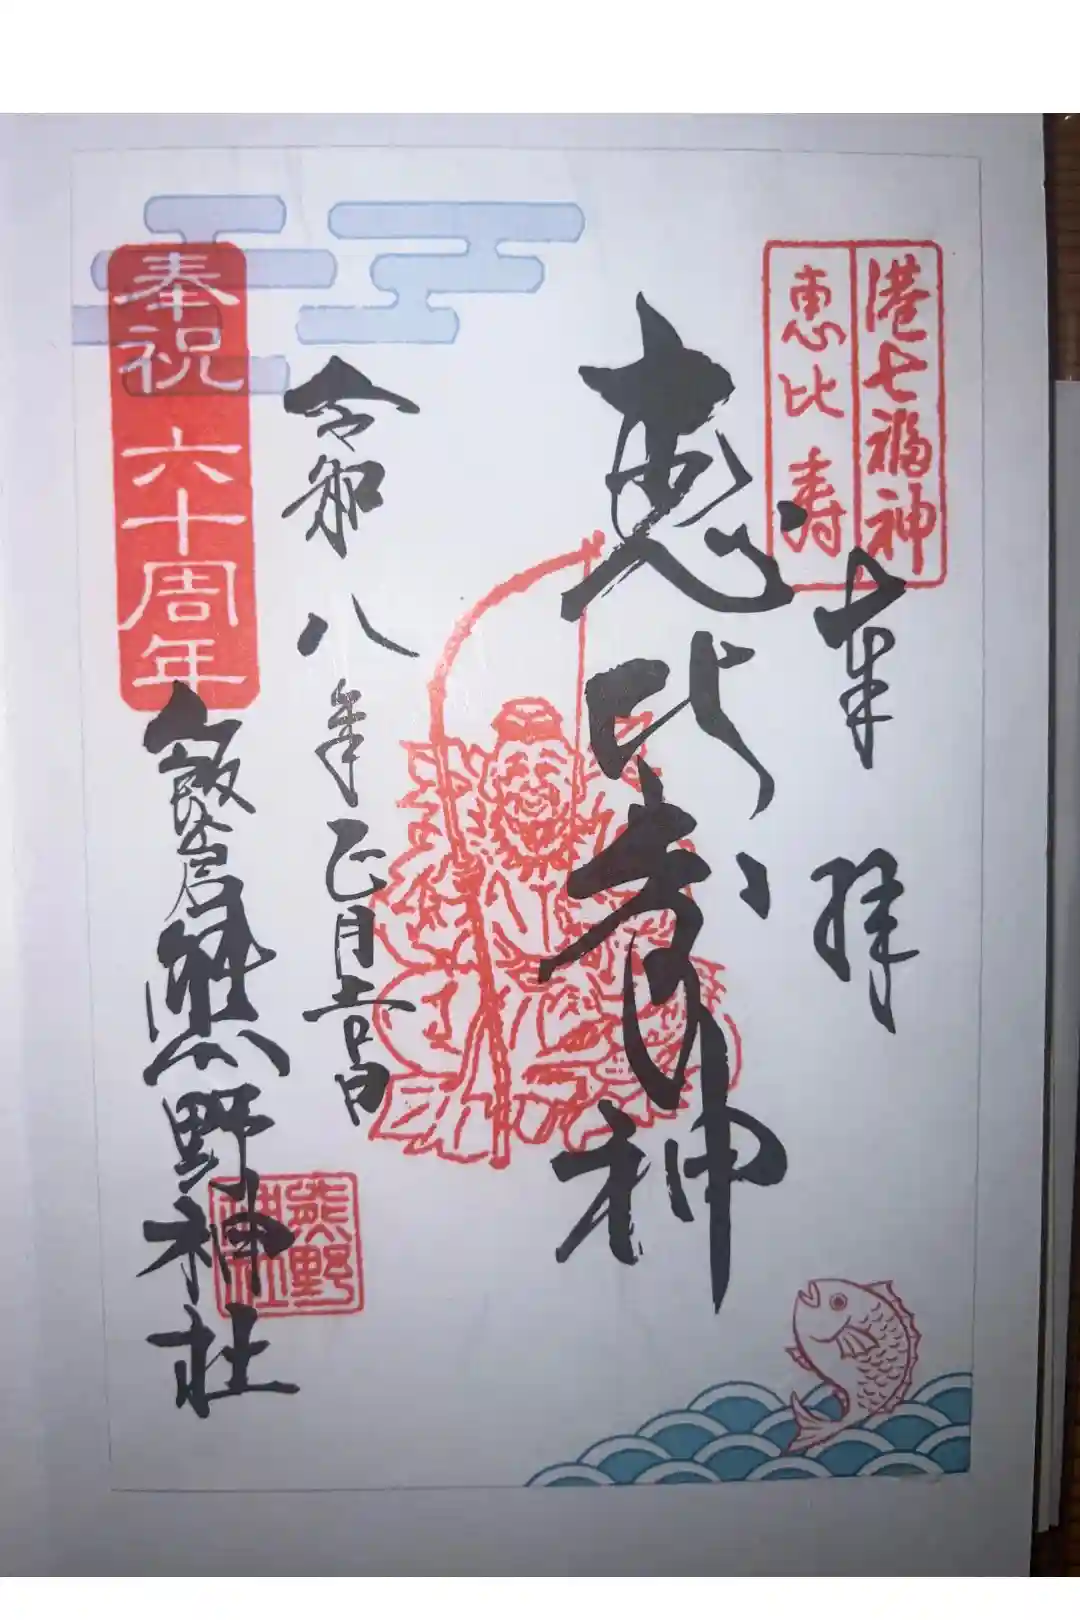 港七福神
恵比寿
奉拝
恵比寿神
令和八年正月十一日
奉祝 六十周年
飯倉熊野神社
熊野
神社